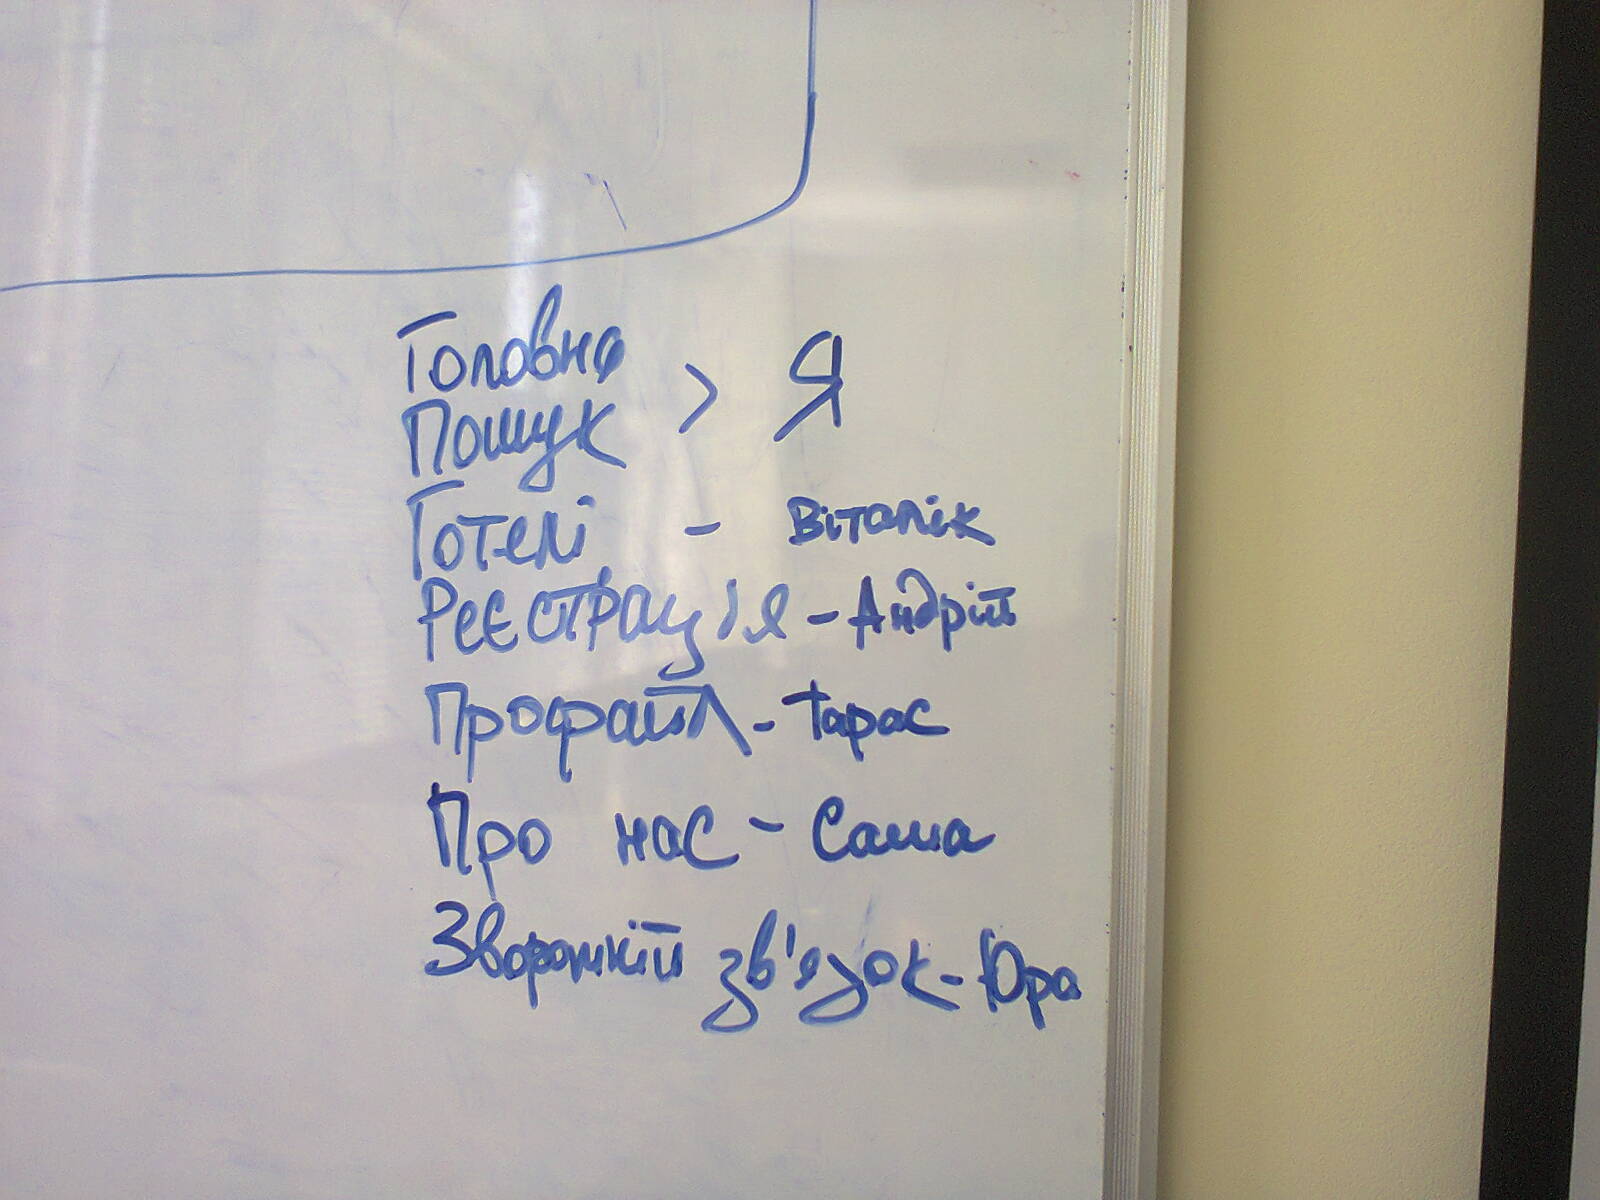 Головна
Пошук > Я
Готелі - Віталік
Реєстрація - Андрій
Профайл - Тарас
Про нас - Саша
Зворотній зв'язок - Юра